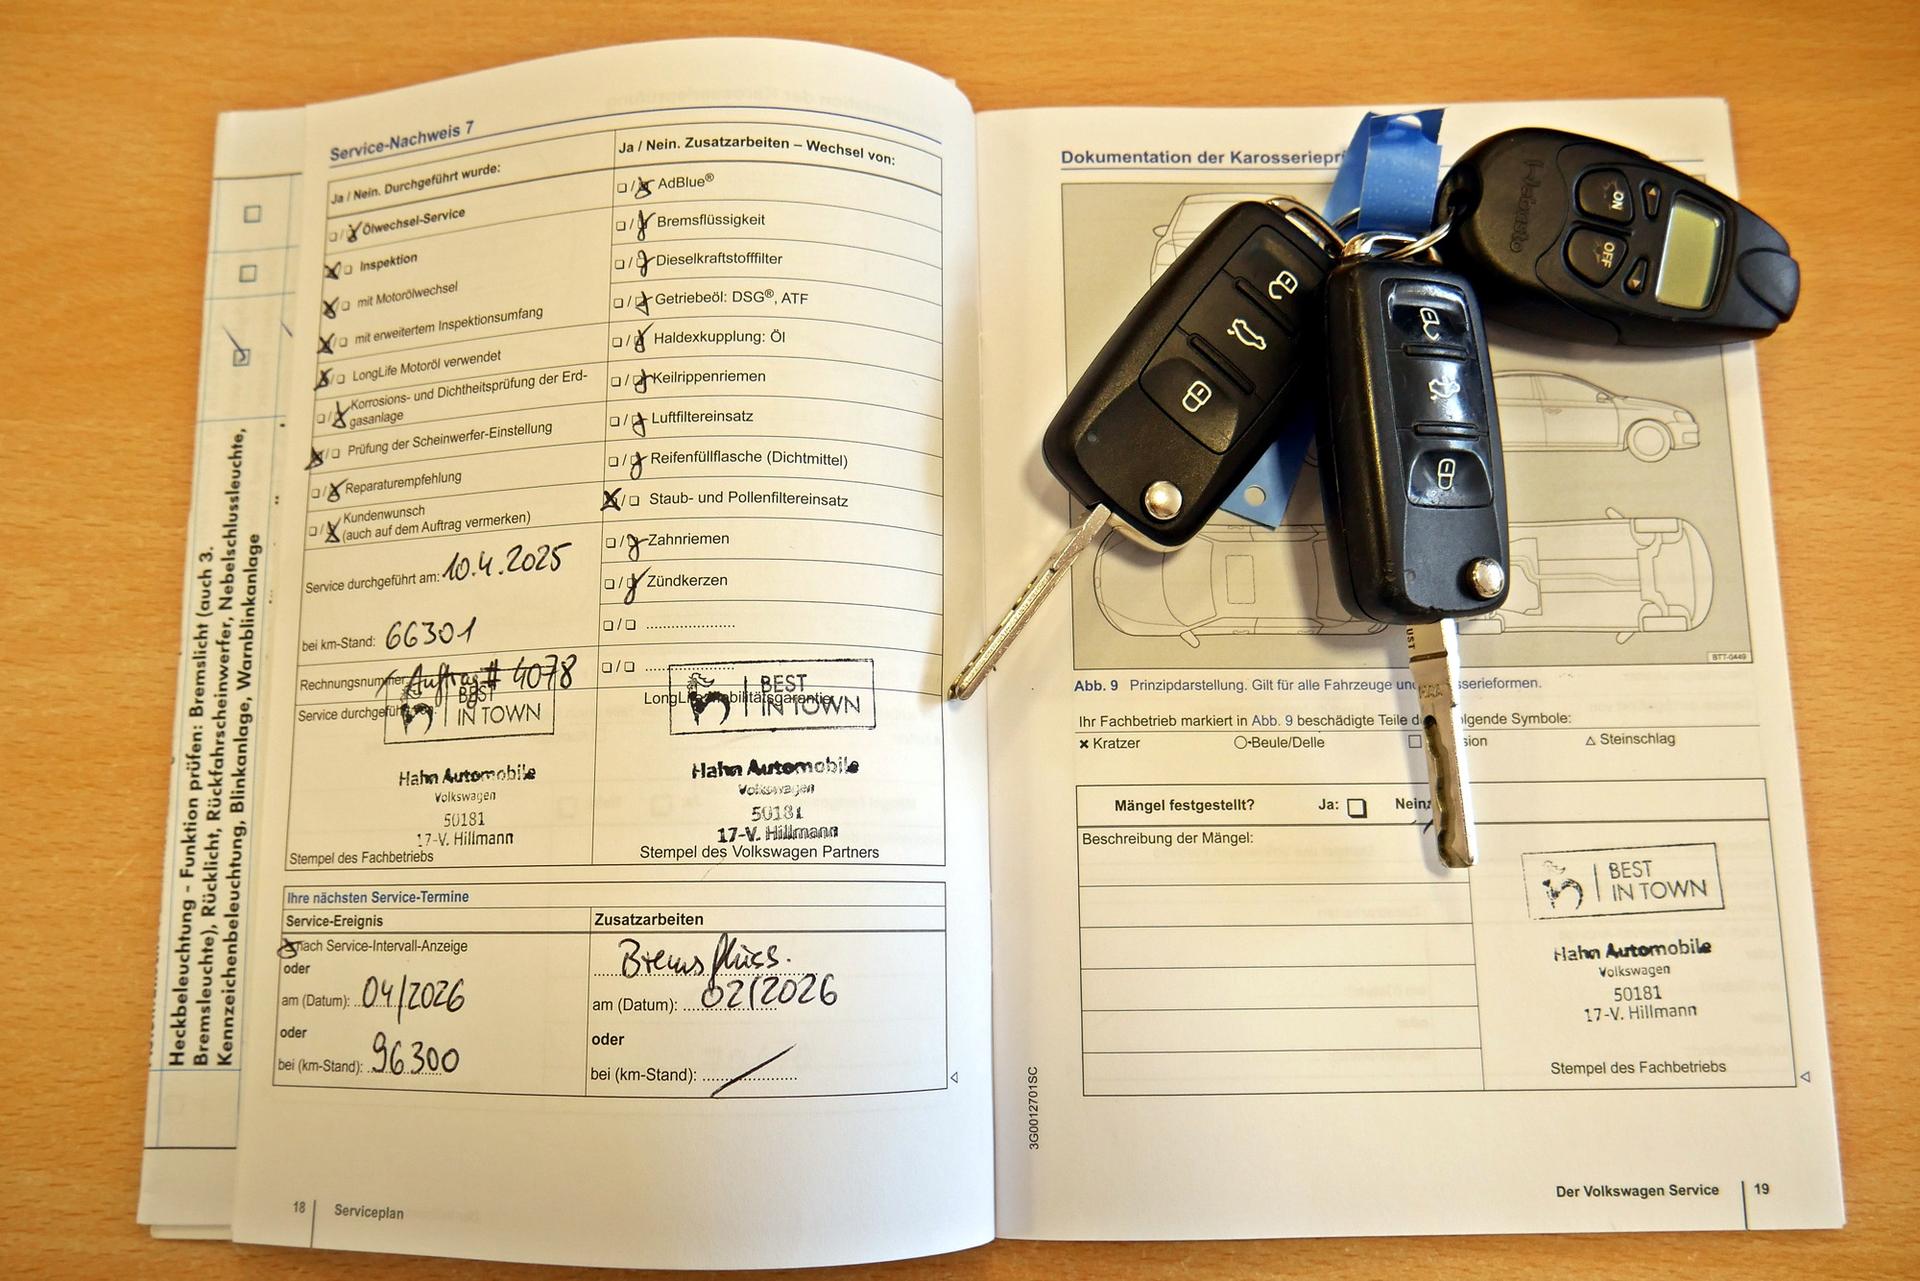 Heckbeleuchtung - Funktion prüfen: Bremslicht (auch 3.
Bremsleuchte), Rücklicht, Rückfahrscheinwerfer, Nebelschlussleuchte,
Kennzeichenbeleuchtung, Blinkanlage, Warnblinkanlage
Service-Nachweis 7
Ja / Nein. Durchgeführt wurde:
Ölwechsel-Service
Inspektion
mit Motorölwechsel
mit erweitertem Inspektionsumfang
LongLife Motoröl verwendet
Korrosions- und Dichtheitsprüfung der Erd-
gasanlage
Prüfung der Scheinwerfer-Einstellung
Reparaturempfehlung
Kundenwunsch
(auch auf dem Auftrag vermerken)
Service durchgeführt am: 10.4.2025
bei km-Stand: 66301
Rechnungsnummer Auftrag # 4078
Service durchgeführt
BEST
IN TOWN
Hahn Automobile
Volkswagen
50181
17-V. Hillmann
Stempel des Fachbetriebs
Ja / Nein. Zusatzarbeiten – Wechsel von:
AdBlue®
Bremsflüssigkeit
Dieselkraftstofffilter
Getriebeöl: DSG®, ATF
Haldexkupplung: Öl
Keilrippenriemen
Luftfiltereinsatz
Reifenfüllflasche (Dichtmittel)
Staub- und Pollenfiltereinsatz
Zahnriemen
Zündkerzen
LongLife Mobilitätsgarantie
BEST
IN TOWN
Hahn Automobile
Volkswagen
50181
17-V. Hillmann
Stempel des Volkswagen Partners
Ihre nächsten Service-Termine
Service-Ereignis
nach Service-Intervall-Anzeige
oder
am (Datum): 04/2026
oder
bei (km-Stand): 96300
Zusatzarbeiten
Bremsflüss.
am (Datum): 02/2026
oder
bei (km-Stand):
18 Serviceplan
Dokumentation der
ON
OFF
Webasto
BTT-0449
Abb. 9 Prinzipdarstellung. Gilt für alle Fahrzeuge
Ihr Fachbetrieb markiert in Abb. 9 beschädigte Teile
Symbole:
Kratzer
Beule/Delle
Steinschlag
Mängel festgestellt? Ja: Nein:
Beschreibung der Mängel:
BEST
IN TOWN
Hahn Automobile
Volkswagen
50181
17-V. Hillmann
Stempel des Fachbetriebs
3G0012701SC
Der Volkswagen Service 19